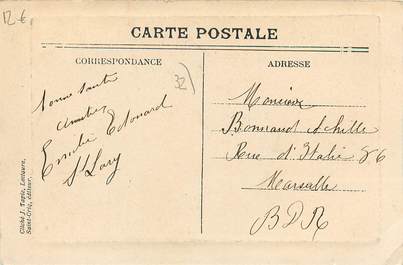 12 €
CARTE POSTALE
CORRESPONDANCE
ADRESSE
32
bonne santé
amitiés
Emilie Edouard
St Lary
Monsieur
Bonnaud Achille
Rue d'Italie 86
Marseille
BDR
Cliché J. Tapie, Lectoure,
Saint-Criq, éditeur.